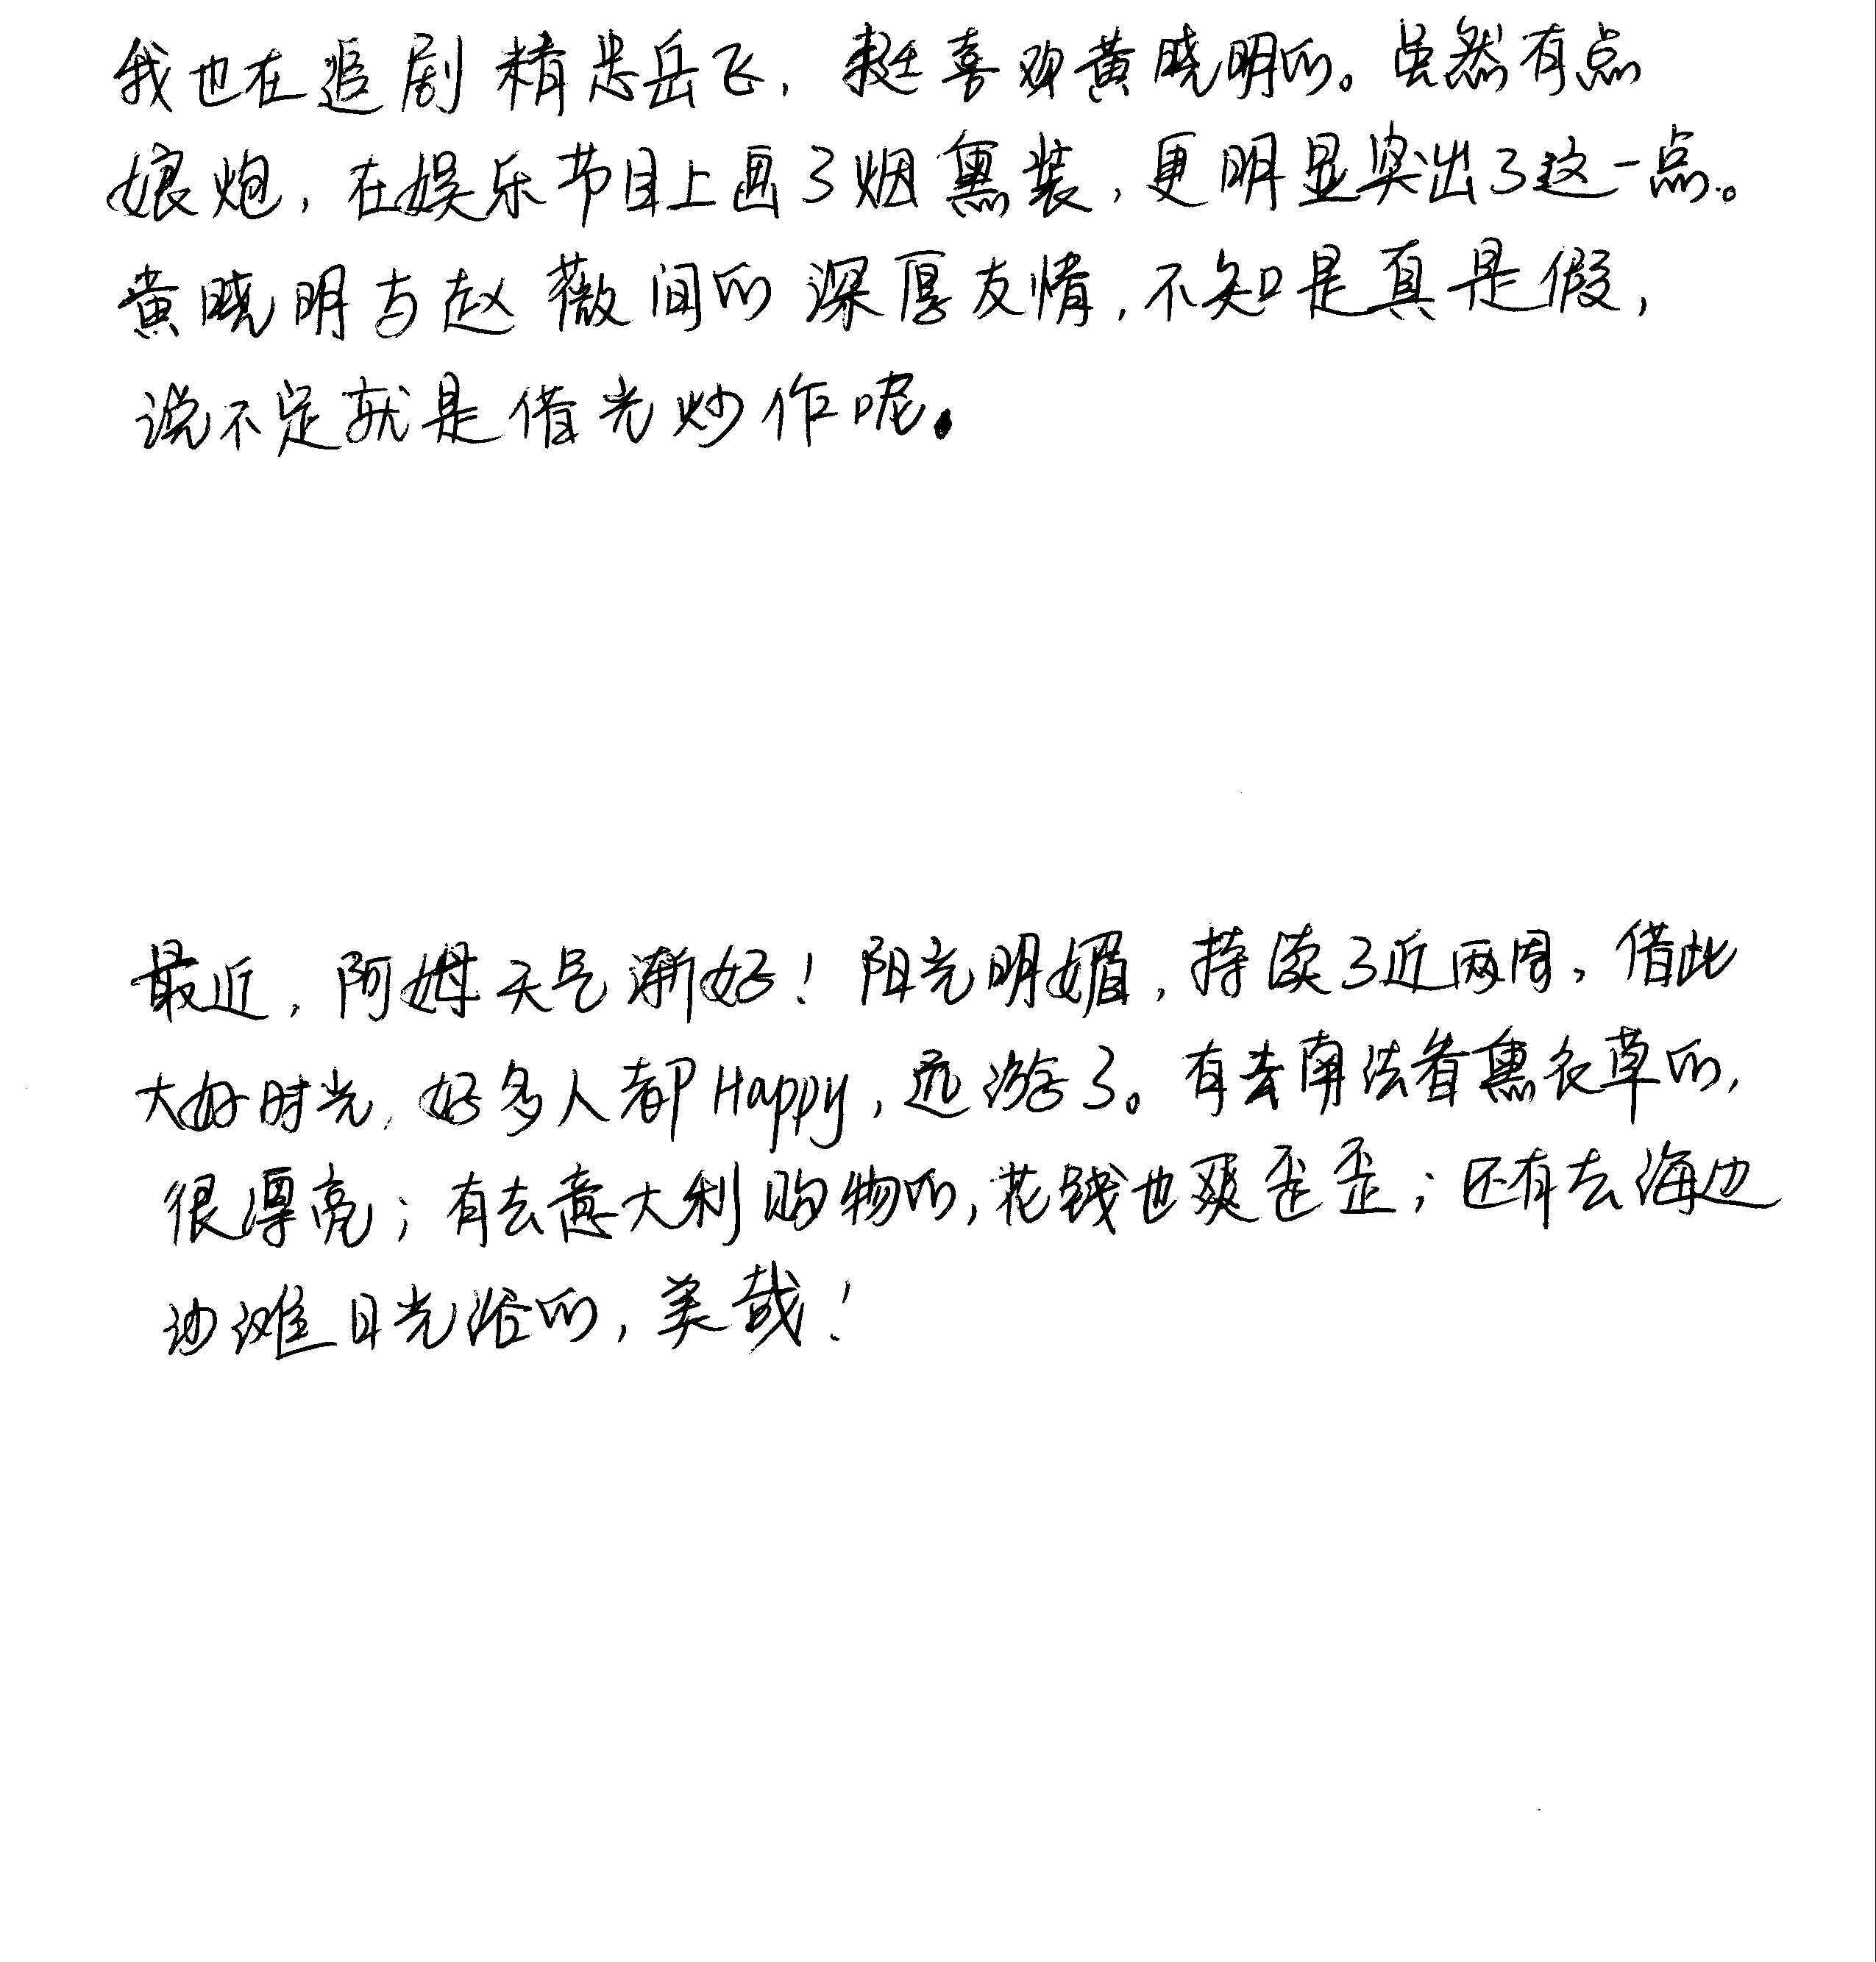 我也在追剧精忠岳飞，挺喜欢黄晓明的。虽然有点
娘炮，在娱乐节目上画了烟熏装，更明显突出了这一点。
黄晓明与赵薇间的深厚友情，不知是真是假，
说不定就是借光炒作呢。
最近，阿姆天气渐好！阳光明媚，持续了近两周，借此
大好时光，好多人都Happy，远游了。有去南法看熏衣草的，
很漂亮；有去意大利购物的，花钱也爽歪歪；还有去海边
沙滩日光浴的，美哉！